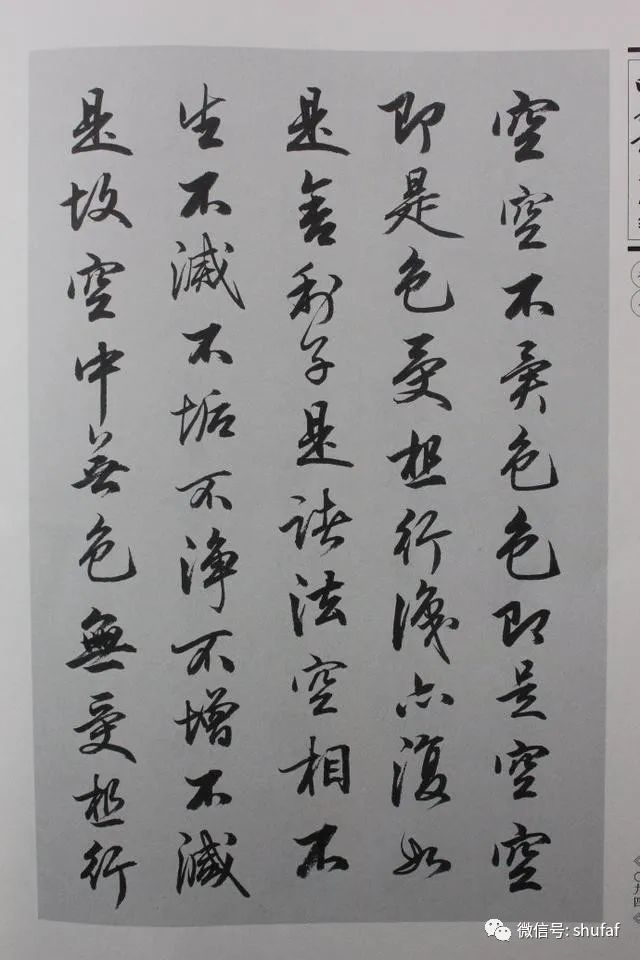 空空不異色色即是空空
即是色受想行識亦復如
是舍利子是諸法空相不
生不滅不垢不淨不增不減
是故空中無色無受想行
〇九四
微信号: shufaf